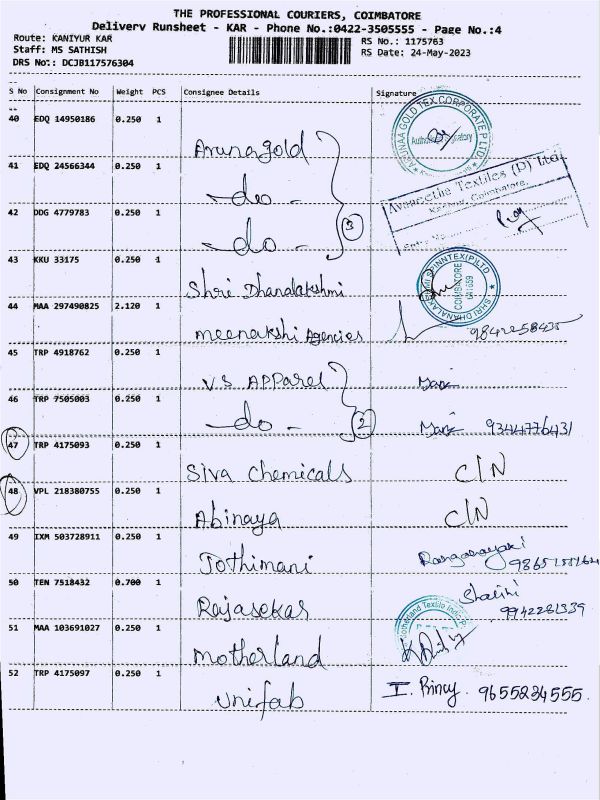 THE PROFESSIONAL COURIERS, COIMBATORE
Delivery Runsheet - KAR - Phone No.:0422-3505555 - Page No.:4
Route: KANIYUR KAR
Staff: MS SATHISH
DRS No: DCJB117576304
RS No.: 1175763
RS Date: 24-May-2023
S No Consignment No Weight PCS Consignee Details Signature
40 EDQ 14950186 0.250 1
Arunagold
41 EDQ 24566344 0.250 1
-do-
42 DDG 4779783 0.250 1
-do-
3
ARUNAA GOLD TEX CORPORATE P LTD
Avaneetha Textiles (P) Ltd.
Coimbatore.
43 KKU 33175 0.250 1
Shri Dhanalakshmi
SHRI DHANALAKSHMI SPINNTEX(P)LTD
COIMBATORE
641659
44 MAA 297490825 2.120 1
meenakshi Agencies
9842258435
45 TRP 4918762 0.250 1
VS APPareL
46 TRP 7505003 0.250 1
-do-
2
9344776431
47 TRP 4175093 0.250 1
Siva chemicals C/N
48 VPL 218380755 0.250 1
Abinaya C/N
49 IXM 503728911 0.250 1
Jothimani
Ranganayaki
50 TEN 7518432 0.700 1
Rajasekar
Shalini
9942281339
51 MAA 103691027 0.250 1
motherland
52 TRP 4175097 0.250 1
unifab
I. Princy. 9655234555.